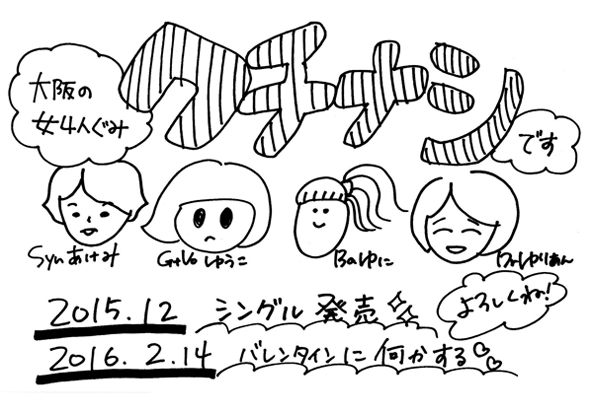 大阪の
女4人ぐみ
クチナシ
です
Synあけみ
Gt.Voゆうこ
Baゆに
Drゆりあん
よろしくね!
2015.12 シングル発売
2016.2.14 バレンタインに何かする